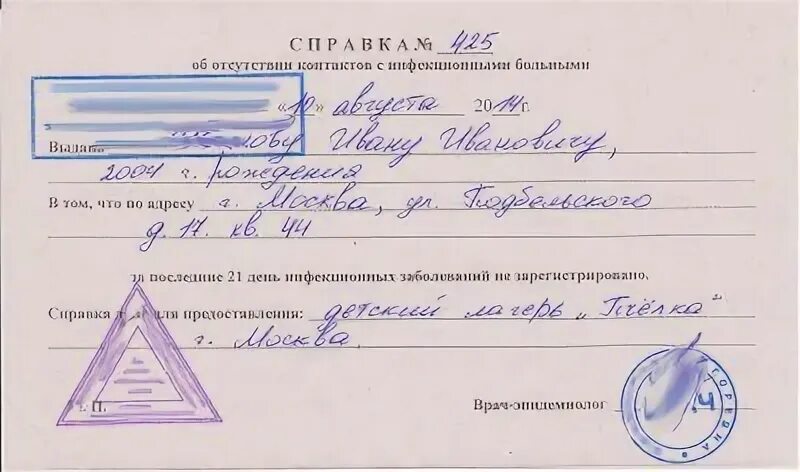 СПРАВКА № 425
об отсутствии контактов с инфекционными больными
«19» августа 2014г.
Выдана Ивану Ивановичу,
2004 г. рождения
В том, что по адресу г. Москва, ул. Подбельского
д. 17. кв. 44
за последние 21 день инфекционных заболеваний не зарегистрировано.
Справка для предоставления: детский лагерь „Пчёлка"
г. Москва
Врач-эпидемиолог